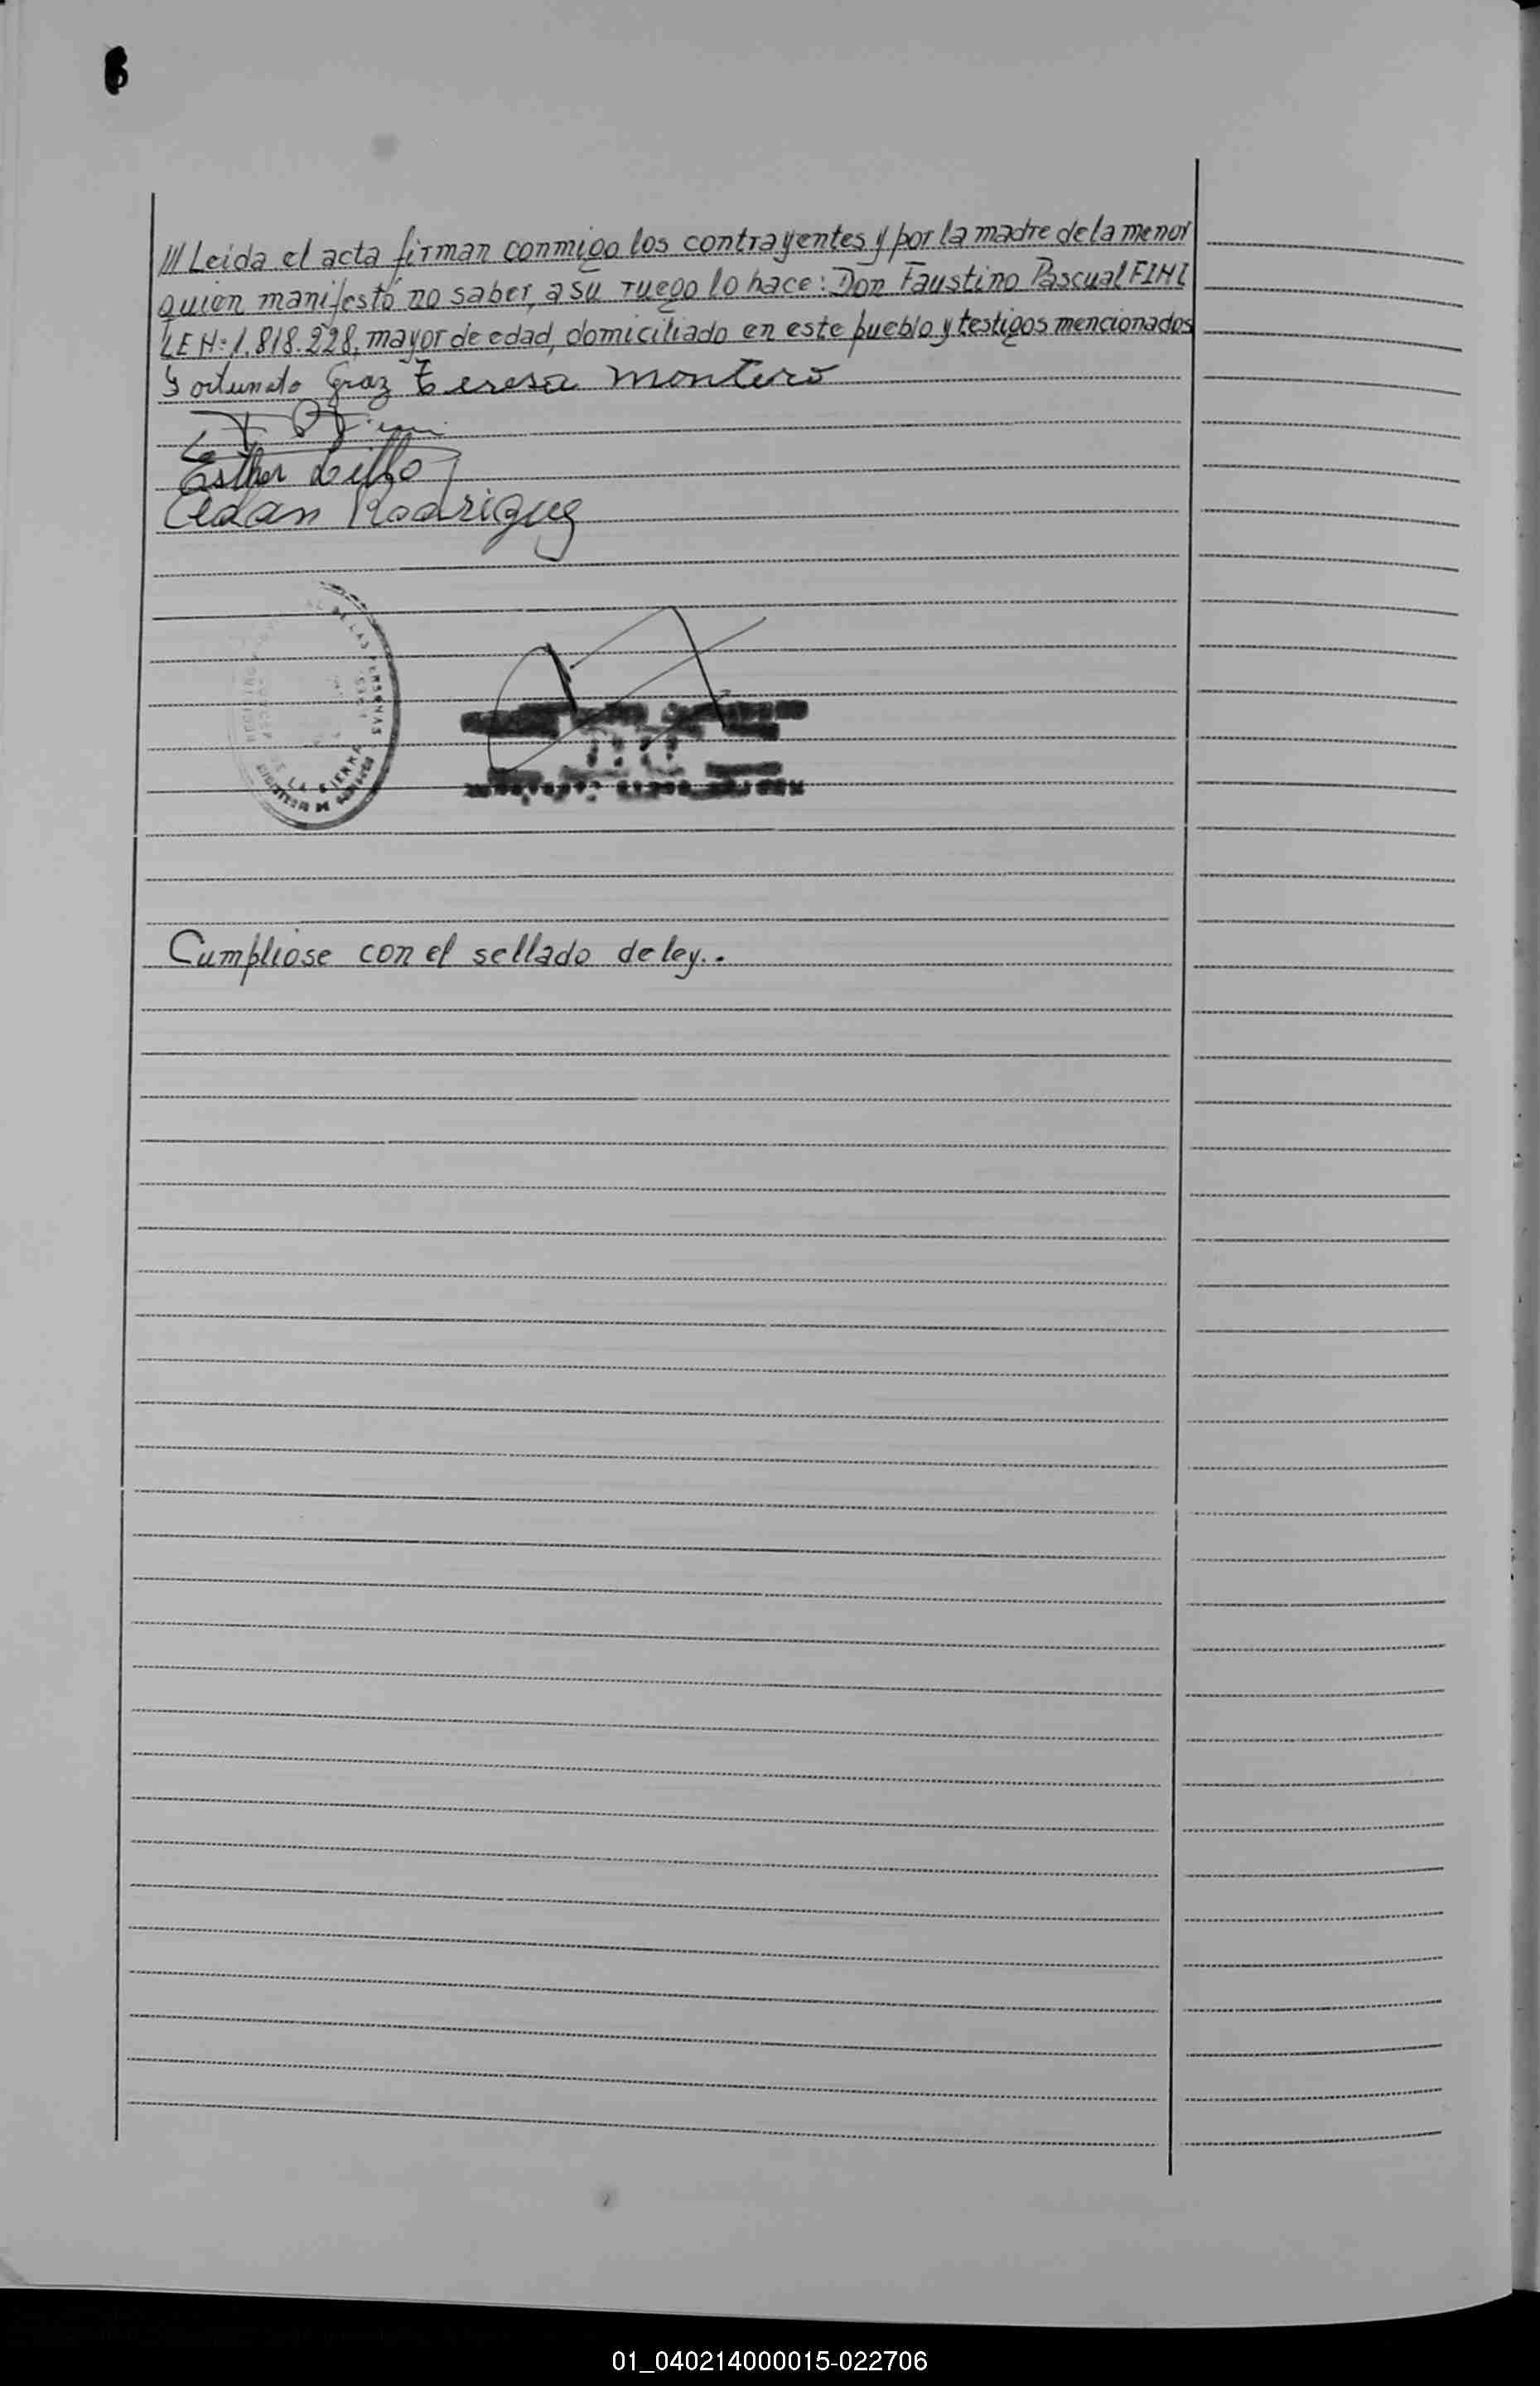 /// Leida el acta firman conmigo los contrayentes y por la madre de la menor
quien manifestó no saber, a su ruego lo hace: Don Faustino Pascual FIMI
LE Nº 1.818.228, mayor de edad, domiciliado en este pueblo y testigos mencionados
Fortunato Graz Teresa Montero
Esther Lillo
Adan Rodriguez
DE LAS PERSONAS
DE LA SIERRA
Cumpliose con el sellado de ley..
01_040214000015-022706